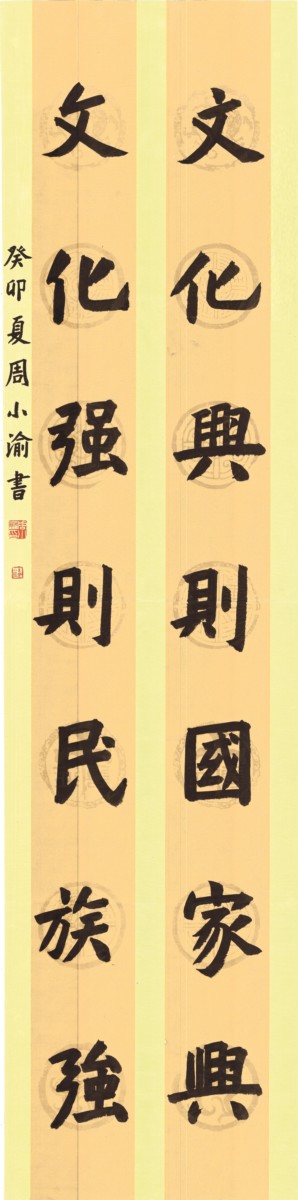 文化興則國家興
文化强則民族強
癸卯夏周小渝書